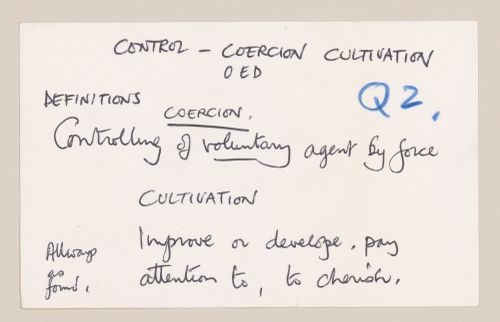 CONTROL – COERCION CULTIVATION
OED
DEFINITIONS
Q2.
COERCION.
Controlling of voluntary agent by force
CULTIVATION
Improve or develope. pay
attention to, to cherish.
Allways
as
found.